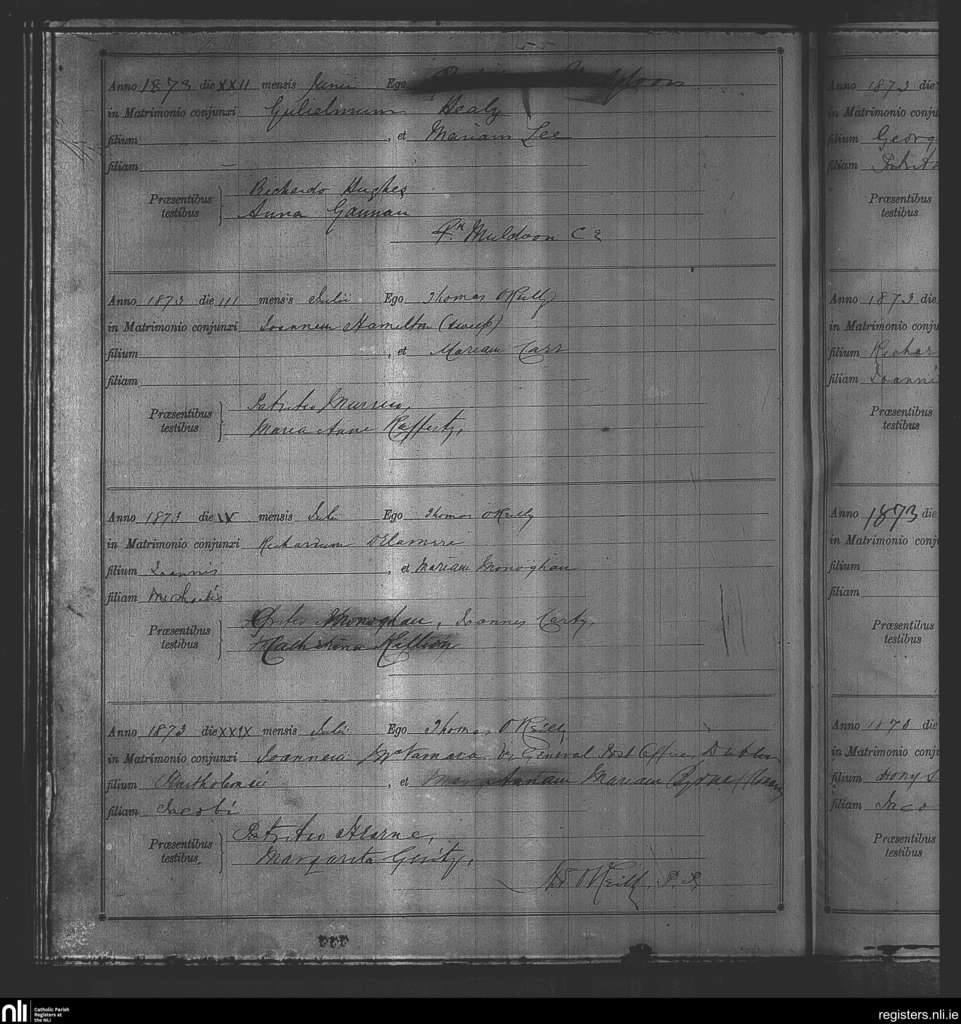 Anno 1873 die XXII mensis Junii Ego Muldoon
in Matrimonio conjunxi Gulielmum Healy
filium , et Mariam Lee
filiam
Præsentibus testibus } Richardo Hughes
Anna Gannan
Pk Muldoon CC
Anno 1873 die III mensis Julii Ego Thomas O'Reilly
in Matrimonio conjunxi Joannem Hamilton (sweep)
filium , et Mariam Carr
filiam
Præsentibus testibus } Patritio Murren,
Maria Anne Rafferty,
Anno 1873 die IX mensis Julii Ego Thomas O'Reilly
in Matrimonio conjunxi Richardum Delamere
filium Joannis , et Mariam Monoghan
filiam Michaelis
Præsentibus testibus } Monoghan, Joannes Carty,
Catherina Killion
Anno 1873 die XXIX mensis Julii Ego Thomas O'Reilly
in Matrimonio conjunxi Joannem McNamara General Post Office Dublin
filium Bartholomei , et Mariam Byrne
filiam Jacobi
Præsentibus testibus, } Patritio Hearne,
Margarita
O'Reilly P.P.
Anno 1873 die
in Matrimonio conju
filium Georg
filiam Patrit
Præsentibus
testibus
Anno 1873 die
in Matrimonio conju
filium Richar
filiam Joanni
Præsentibus
testibus
Anno 1873 die
in Matrimonio conj
filium
filiam
Præsentibus
testibus
Anno 1873 die
in Matrimonio conj
filium
filiam Jaco
Præsentibus
testibus
nli Catholic Parish
Registers at
the NLI
registers.nli.ie